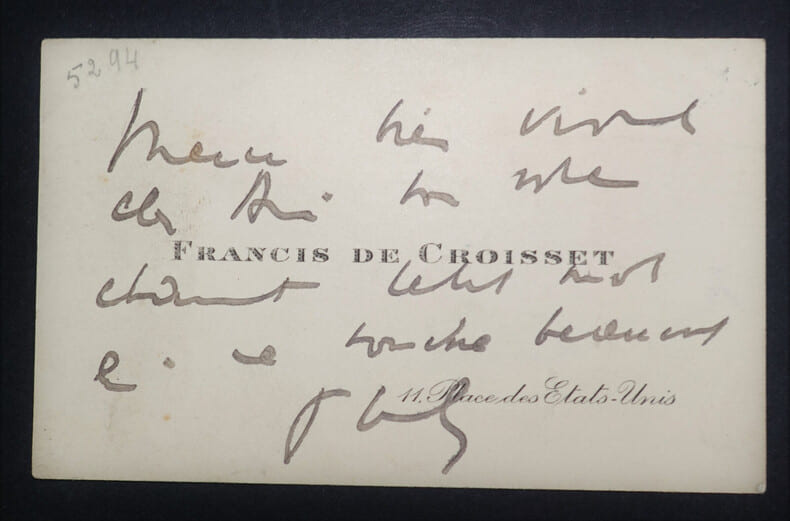 5294
Merci bien vivement
cher Ami de votre
FRANCIS DE CROISSET
charmant petit mot
qui me touche beaucoup
11. Place des Etats-Unis